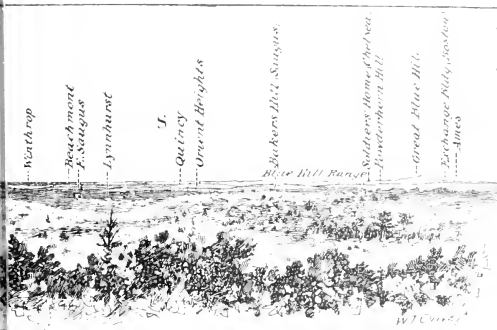 Winthrop
Beachmont
E. Saugus
Lynnhurst
J.
Quincy
Orient Heights
Bakers Hill Saugus.
Soldiers Home Chelsea.
Powderhorn Hill
Great Blue Hill.
Exchange Bldg, Boston.
Ames
Blue Hill Range